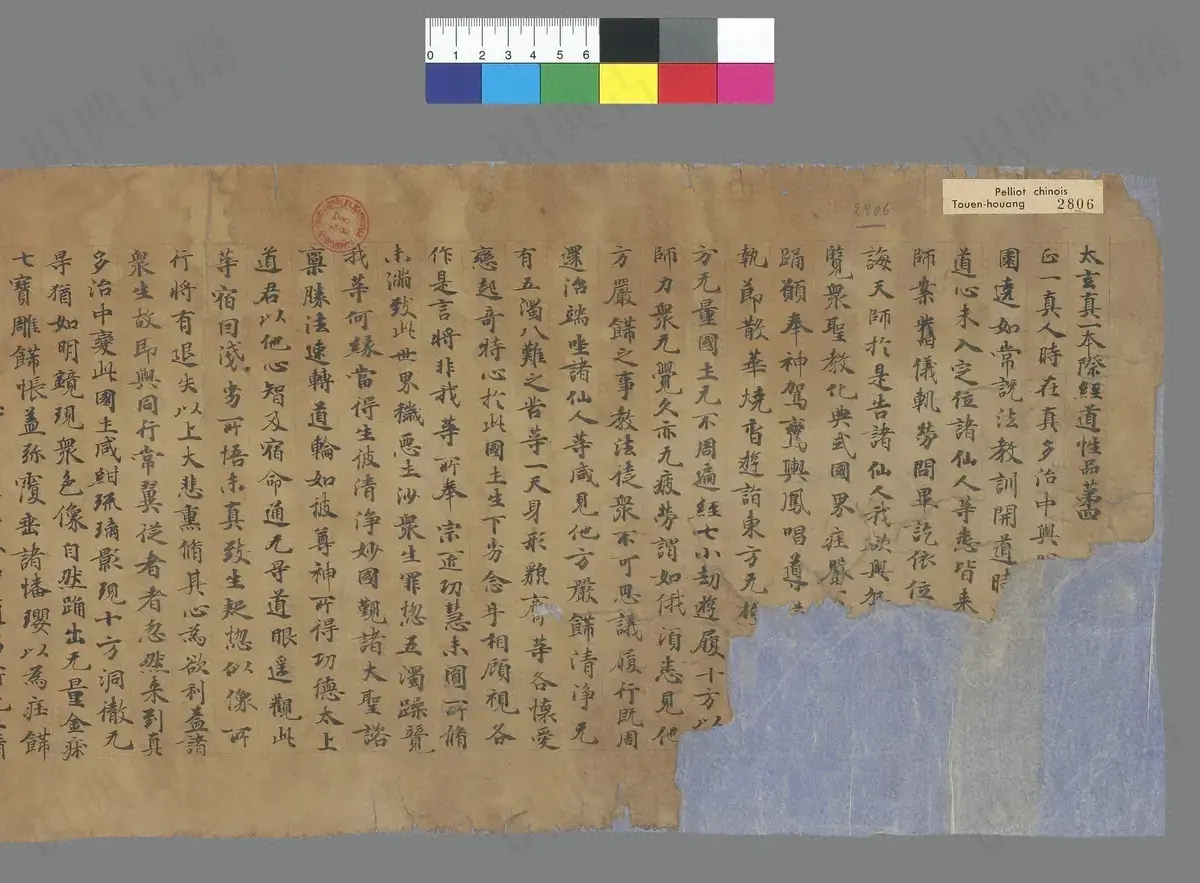 Pelliot chinois
Touen-houang 2806
2806
0 1 2 3 4 5 6
太玄真一本際經道性品苐四
正一真人時在真多治中與
圍遶如常說法教訓開道時
道心未入㝎位諸仙人等悉皆来
師案舊儀軌勞問畢訖依位
誨天師於是告諸仙人我欲與
覽衆聖教化典式國界疰嚴
踊願奉神駕鸞輿鳳唱導
執節散華燒香遊詣東方无
方无量國土无不周遍經七小劫遊履十方以
師力衆无覺久亦无疲勞謂如俄湏悉見他
方嚴餝之事教法徒衆不可思議履行既周
還治端坐諸仙人等咸見他方嚴餝清浄无
有五濁八難之苦等一天身形貌齊等各懷愛
戀起奇特心於此國土生下劣念乎相顧視各
作是言將非我等所奉宗匠功慧未圎所脩
未滿致此世界穢惡土沙衆生罪惱五濁躁競
我等何縁當得生彼清浄妙國覲諸大聖諮
稟勝法速轉道輪如彼尊神所得功德太上
道君以他心智及宿命通无㝵道眼遥觀此
等宿因淺劣所悟未真致生起惱似像所
行將有退失以上大悲熏脩其心為欲利益諸
衆生故即與同行常翼従者忽然来到真
多治中變此國土咸紺琉璃影現十方洞徹无
㝵猶如明鏡現衆色像自然踊出无量金床
七寳雕餝帳盖弥覆垂諸幡瓔以為疰餝